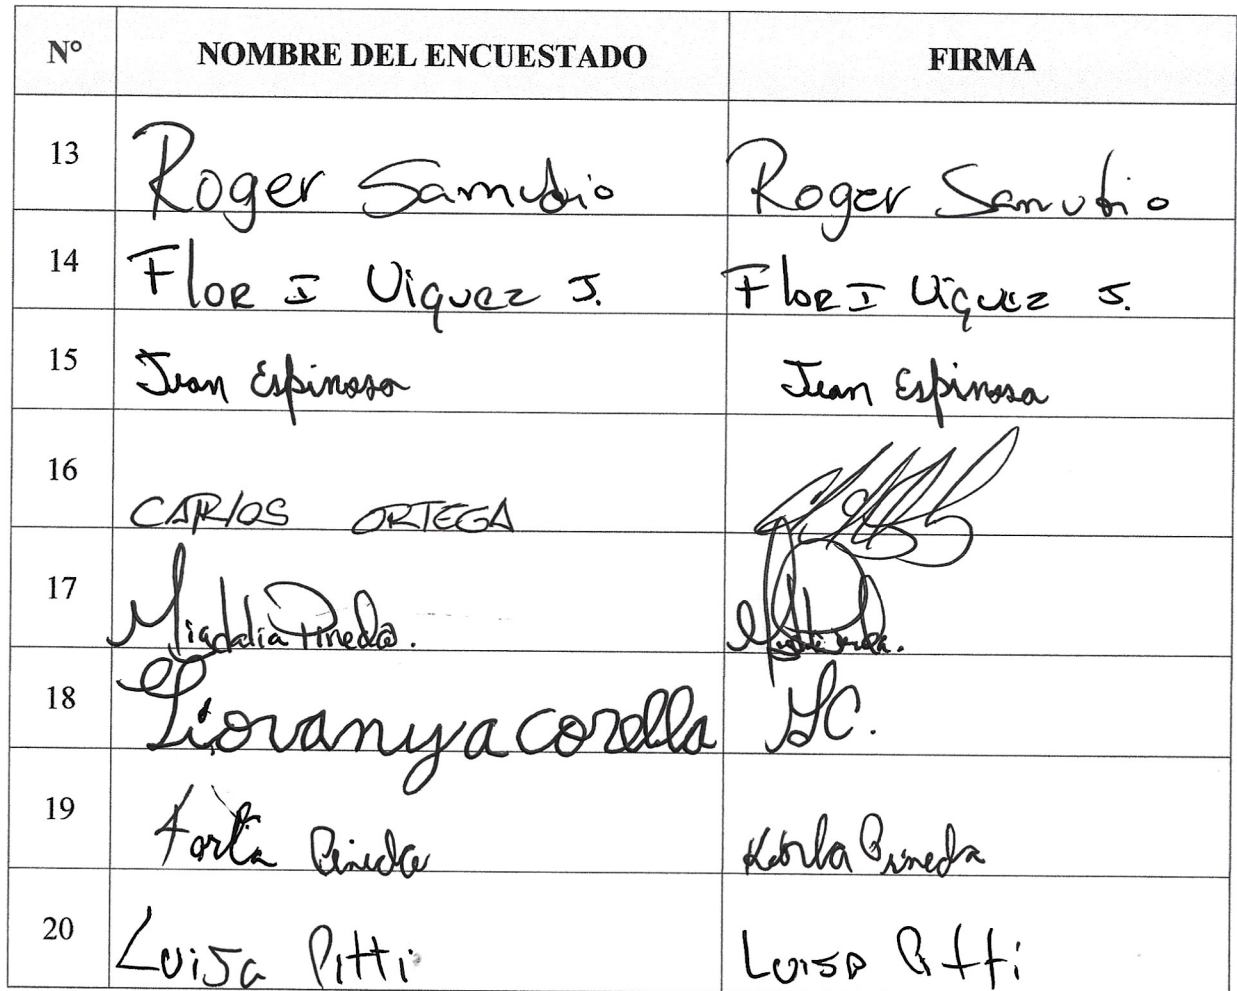 N° NOMBRE DEL ENCUESTADO FIRMA
13 Roger Samudio Roger Samudio
14 Flor I Viquez J. Flor I Viquez J.
15 Juan Espinosa Juan Espinosa
16 CARLOS ORTEGA
17 Migdalia Pineda.
18 Giovanya Corella GC.
19 Karla Pineda Karla Pineda
20 Luisa Pitti Luisa Pitti